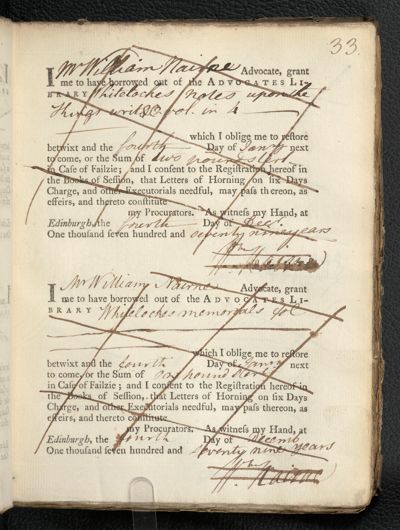 33.
I Mr William Nairne Advocate, grant
me to have borrowed out of the ADVOCATES LI-
BRARY Whitelockes notes upon the
Kings writ &c vol. in 4
which I oblige me to reſtore
betwixt and the fourth Day of Janry next
to come, or the Sum of two pounds sterl.
in Caſe of Failzie; and I conſent to the Regiſtration hereof in
the Books of Seſſion, that Letters of Horning on ſix Days
Charge, and other Executorials needful, may paſs thereon, as
effeirs, and thereto conſtitute
my Procurators. As witneſs my Hand, at
Edinburgh, the fourth Day of Decr.
One thouſand ſeven hundred and seventy nine years
I Mr William Nairne Advocate, grant
me to have borrowed out of the ADVOCATES LI-
BRARY Whitelockes memorials fol
which I oblige me to reſtore
betwixt and the fourth Day of Janry next
to come, or the Sum of One pound sterl
in Caſe of Failzie; and I conſent to the Regiſtration hereof in
the Books of Seſſion, that Letters of Horning on ſix Days
Charge, and other Executorials needful, may paſs thereon, as
effeirs, and thereto conſtitute
my Procurators. As witneſs my Hand, at
Edinburgh, the fourth Day of Decemb
One thouſand ſeven hundred and seventy nine years
Wm Nairne